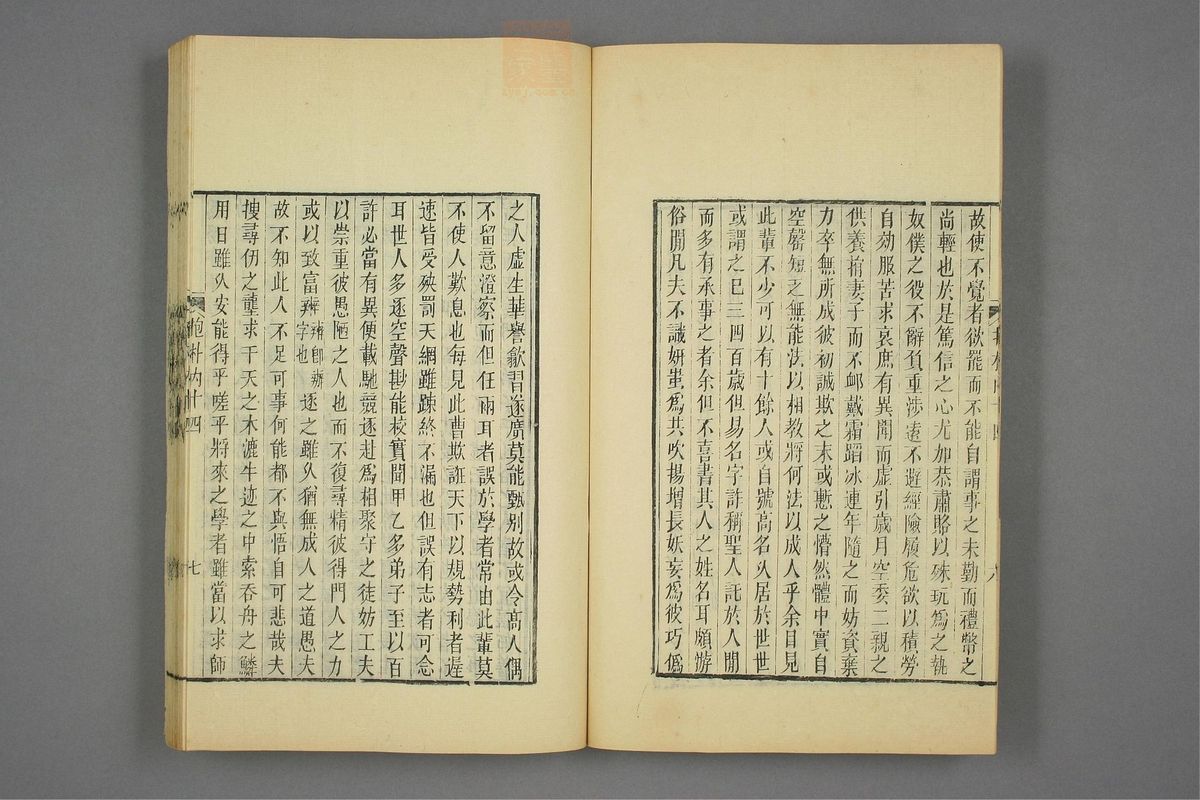 故使不覺者欲罷而不能自謂事之未勤而禮幣之
尚輕也於是篤信之心尤加恭肅賂以殊玩爲之執
奴僕之役不辭負重涉遠不避經險履危欲以積勞
自効服苦求哀庶有異聞而虛引歲月空委二親之
供養捐妻子而不卹戴霜蹈冰連年隨之而妨資棄
力卒無所成彼初誠欺之末或慙之懵然體中實自
空罄短乏無能法以相教將何法以成人乎余目見
此輩不少可以有十餘人或自號高名乆居於世世
或謂之已三四百歲但易名字詐稱聖人託於人閒
而多有承事之者余但不喜書其人之姓名耳頗游
俗閒凡夫不識妍蚩爲共吹揚增長妖妄爲彼巧僞
之人虛生華譽歙習遂廣莫能甄别故或令髙人偶
不留意澄察而但任兩耳者誤於學者常由此輩莫
不使人歎息也每見此曹欺誑天下以規勢利者遲
速皆受殃罰天網雖踈終不漏也但誤有志者可念
耳世人多逐空聲尠能校實聞甲乙多弟子至以百
許必當有異便載馳競逐赴爲相聚守之徒妨工夫
以崇重彼愚陋之人也而不復尋精彼得門人之力
或以致富辨辨卽辦字也逐之雖乆猶無成人之道愚夫
故不知此人不足可事何能都不與悟自可悲哉夫
搜尋仞之壟求干天之木漉牛迹之中索吞舟之鱗
用日雖乆安能得乎嗟乎將來之學者雖當以求師
抱朴内十四
七